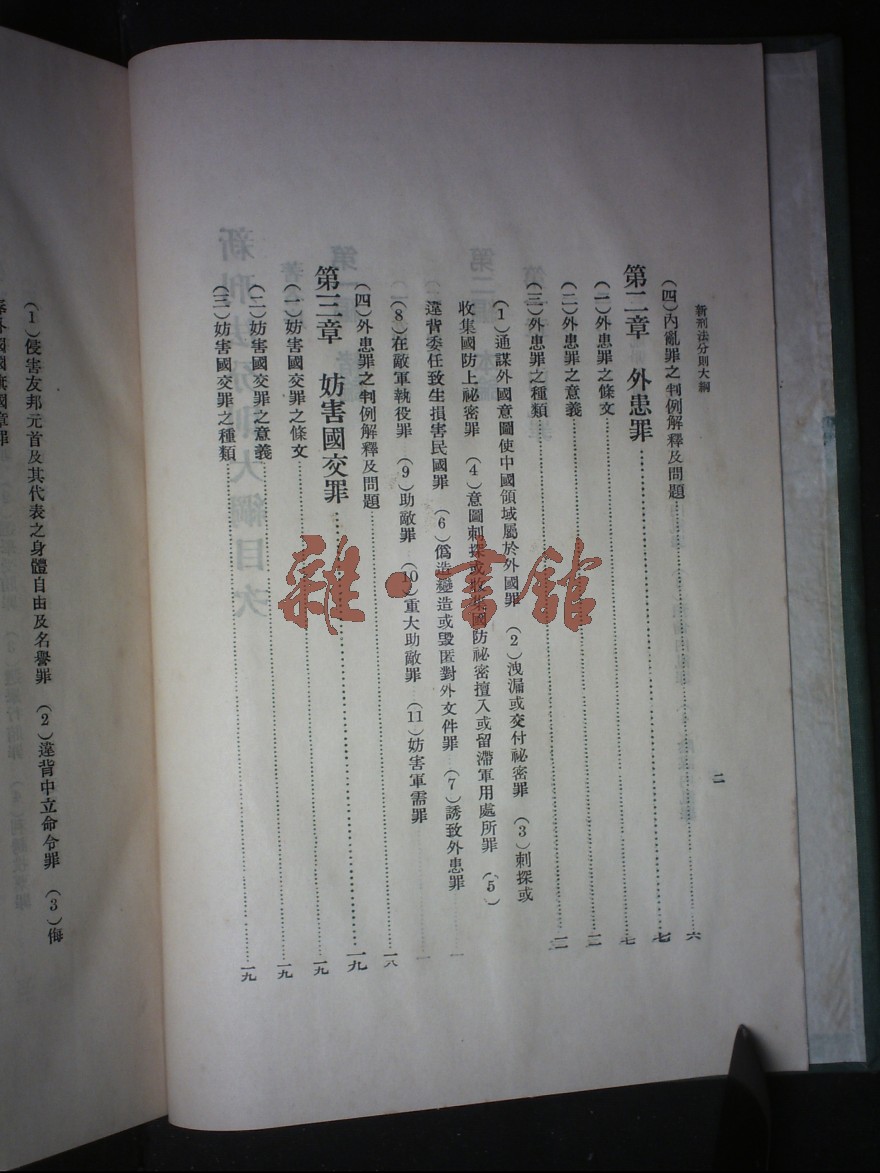 新刑法分則大綱
二
(四)內亂罪之判例解釋及問題……六
第二章 外患罪……七
(一)外患罪之條文……七
(二)外患罪之意義……一二
(三)外患罪之種類……一二
(1)通謀外國意圖使中國領域屬於外國罪 (2)洩漏或交付祕密罪 (3)刺探或
收集國防上祕密罪 (4)意圖刺探或收集國防祕密擅入或留滯軍用處所罪 (5)
違背委任致生損害民國罪 (6)偽造變造或毀匿對外文件罪 (7)誘致外患罪
(8)在敵軍執役罪 (9)助敵罪 (10)重大助敵罪 (11)妨害軍需罪
(四)外患罪之判例解釋及問題……一八
第三章 妨害國交罪……一九
(一)妨害國交罪之條文……一九
(二)妨害國交罪之意義……一九
(三)妨害國交罪之種類……一九
(1)侵害友邦元首及其代表之身體自由及名譽罪 (2)違背中立命令罪 (3)侮
雜·書館